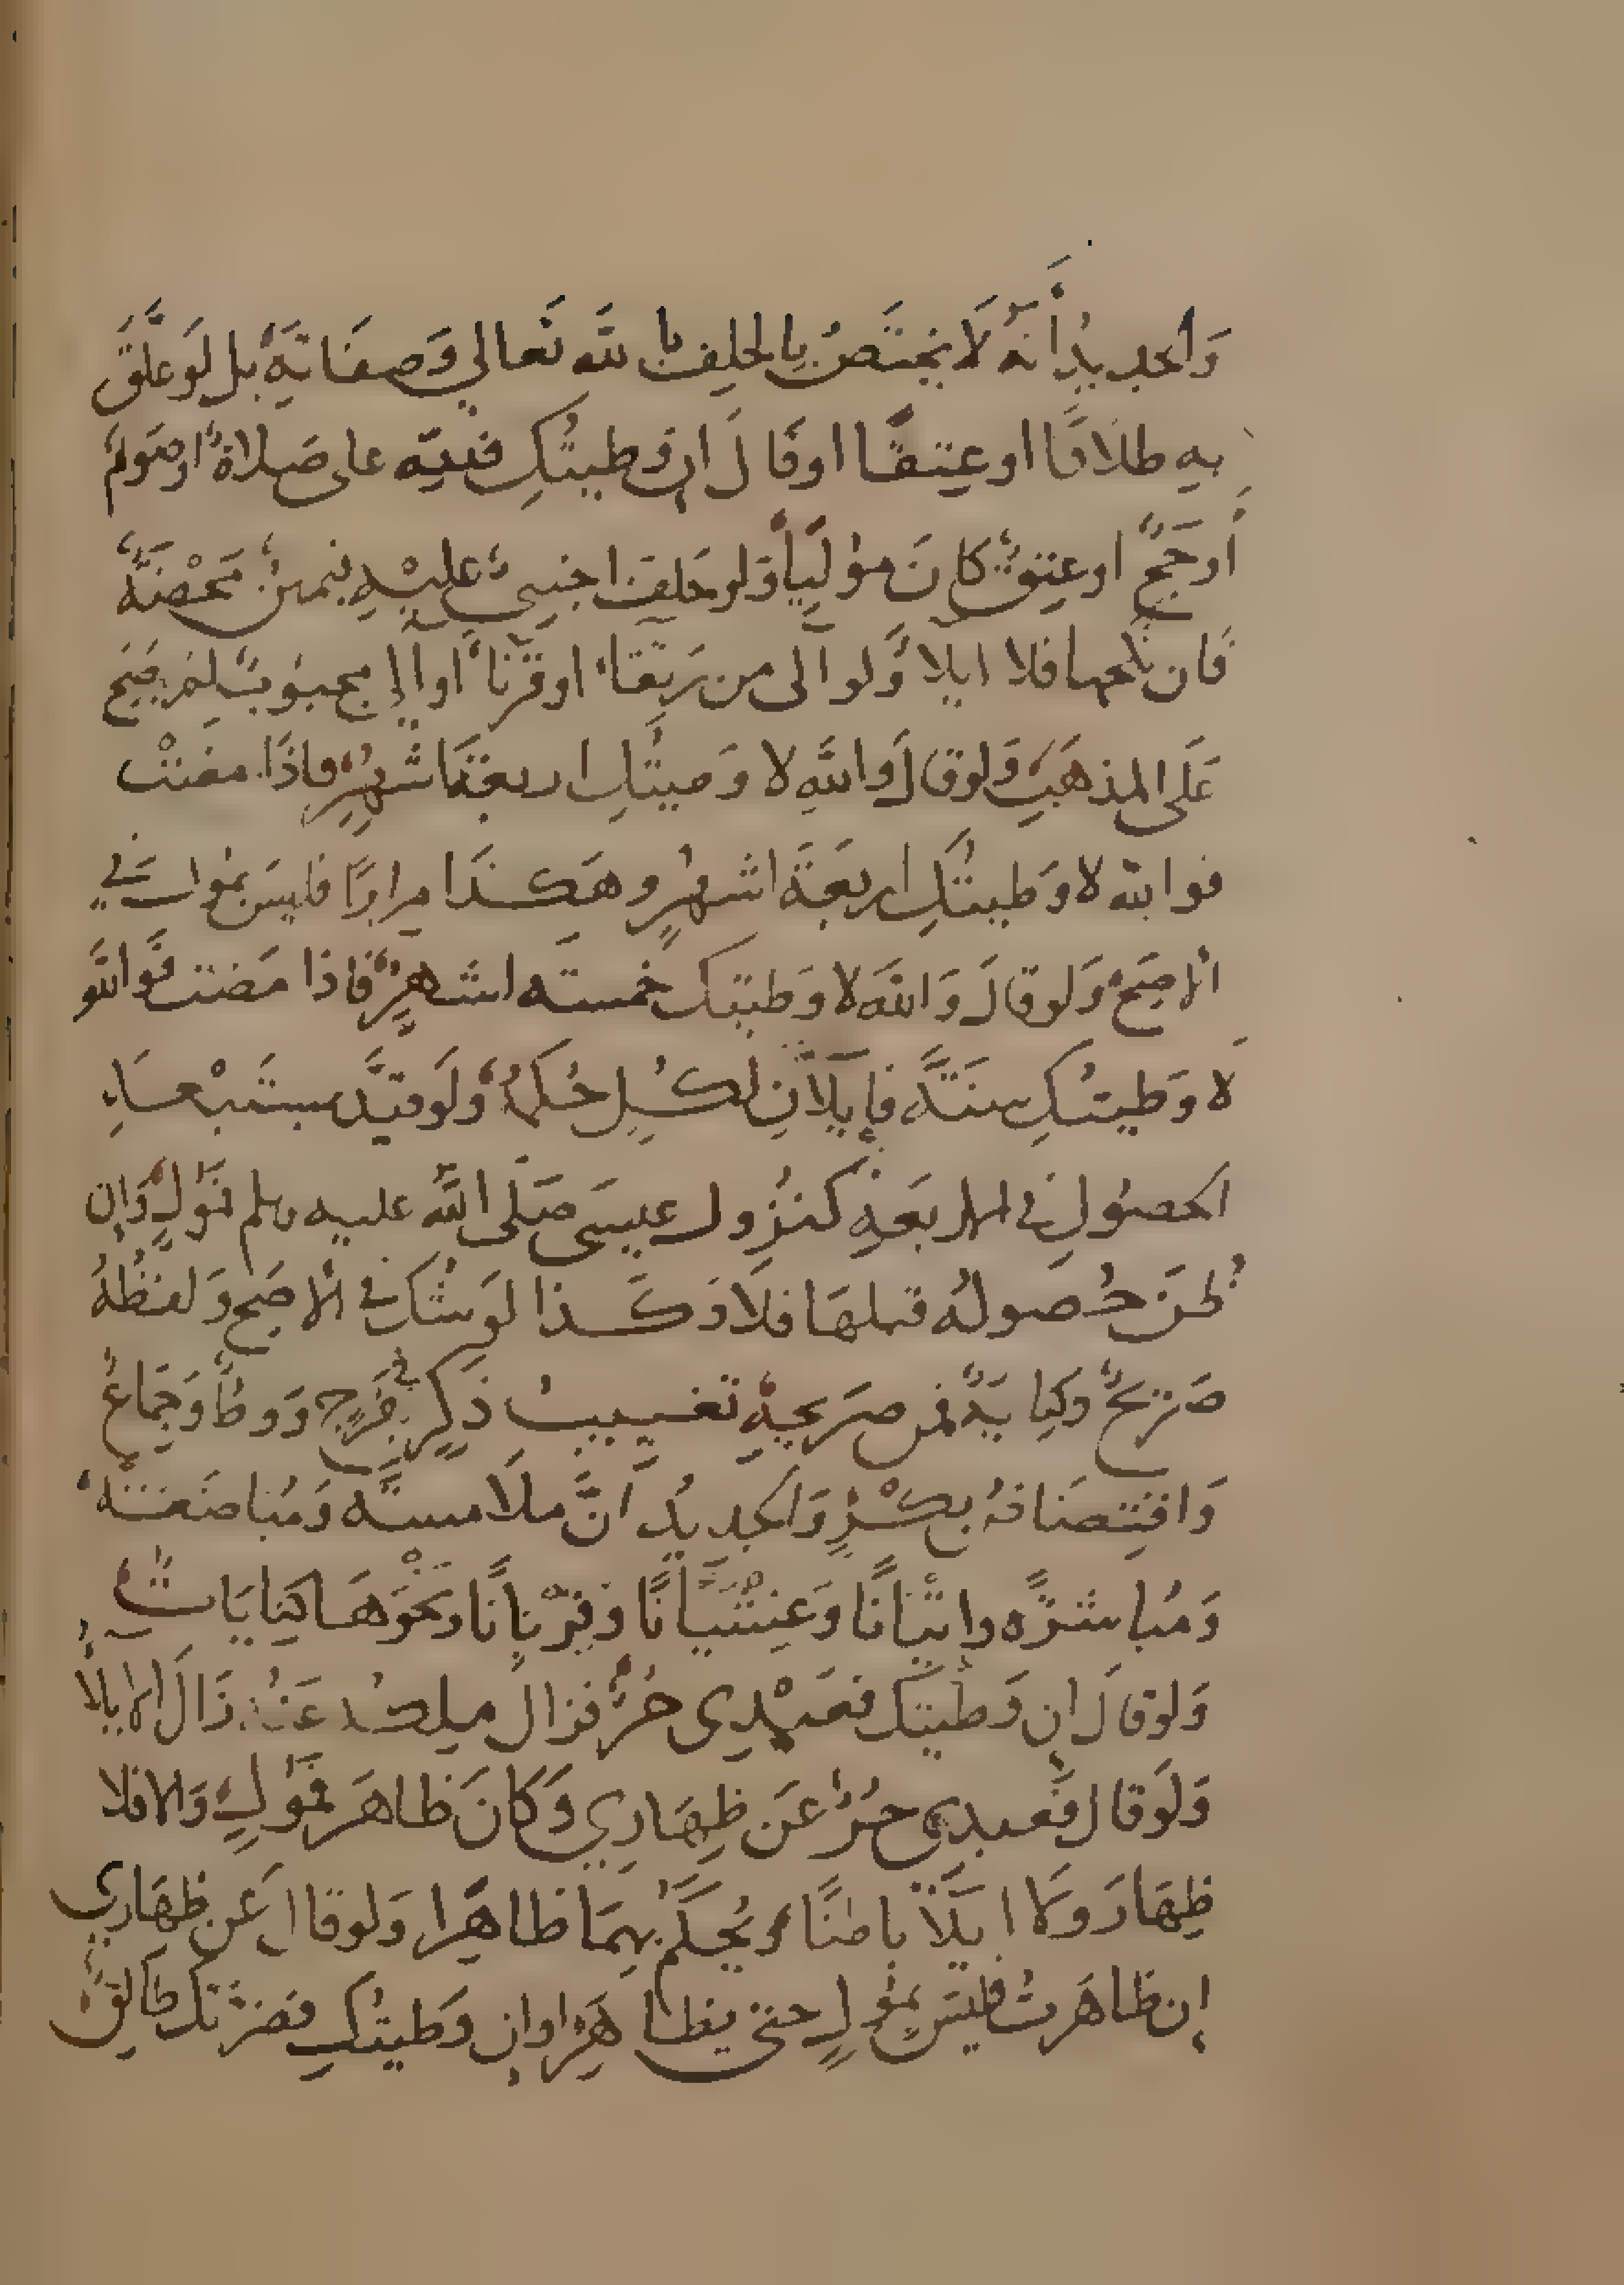 وَالجديدُ أَنَّهُ لَا يختَصُّ بِالحلِفِ بالله تَعالي وَصِفَاتِهِ بل لَو علَّقَ
بِهِ طلاقًا او عِتقًا اوقَالَ ان وَطيتُكِ فلِلّه على صَلاةٌ او صَومٌ
اَو حَجٌّ او عِتقٌ كانَ مؤلِيًا وَلو حَلِفَ اجنبيٌّ عليْهِ فيمينٌ مَحْضَةٌ
فان نكحها فلا ايلاَ وَلو آلى من رَتْقَا او قَرْنَا او آلي مجبوبٌ لم يصح
عَلى المذهَبِ وَلو قالَ وَاللهِ لا وَطيتُكِ اربعَةَ اشهُرٍ فاذَا مضتْ
فوالله لا وَطيتُكِ اربعَةَ اشهُرٍ وهَكذَا مِرارًا فليسَ بمُولٍ في
الاصَحِّ وَلو قالَ وَاللهَ لا وَطيتك خمسَة اشهرٍ فاذا مَضت فَواللهِ
لا وَطيتُكِ سَنَةً فإيلآانِ لكُلٍ حُكمُهُ وَلَو قيَّد بمستَبْعَدِ
الحصُولِ في الاربَعَةِ كنزُول عيسَى صَلَّى اللهُ عليه وسلم فَمُولٍ وَاِن
ظنَّ حُصولَهُ قبلهَا فلَا وَكَذا لَو شكَّ في الاصَحِّ وَلفظُهُ
صَريحٌ وَكِنايَةٌ فمن صَريحِهِ تغييبُ ذكرٍ في فَرجٍ وَوطأٌ وَجِمَاعٌ
وَافتِضَاضُ بِكْرٍ وَالجديدُ انَّ ملَامسَة وَمُباضَعَةً
وَمُباشَرَةً واتيَانًا وَغِشْيَانًا وَقِربَانًا وَنحْوَهَا كِنايَاتٌ
وَلوقالَ اِن وَطيتك فعَبْدِي حُرٌّ فزالَ ملكُهُ عَنْهُ زَالَ الايلآُ
وَلَوقال فَعبدِي حُرٌّ عَن ظِهَارِي وَكَانَ ظَاهَرَ فَمُولٍ وَالا فلا
ظِهَارَ وَلَا ايلآَ باطنًا وَيُحكَمُ بِهِمَا ظاهِرا وَلوقال عَن ظِهَارِي
اِن ظاهَرتُ فليسَ بمُولٍ حتى يظاهِرَ او اِن وَطيتُكِ فضرَّتك طَالِقٌ